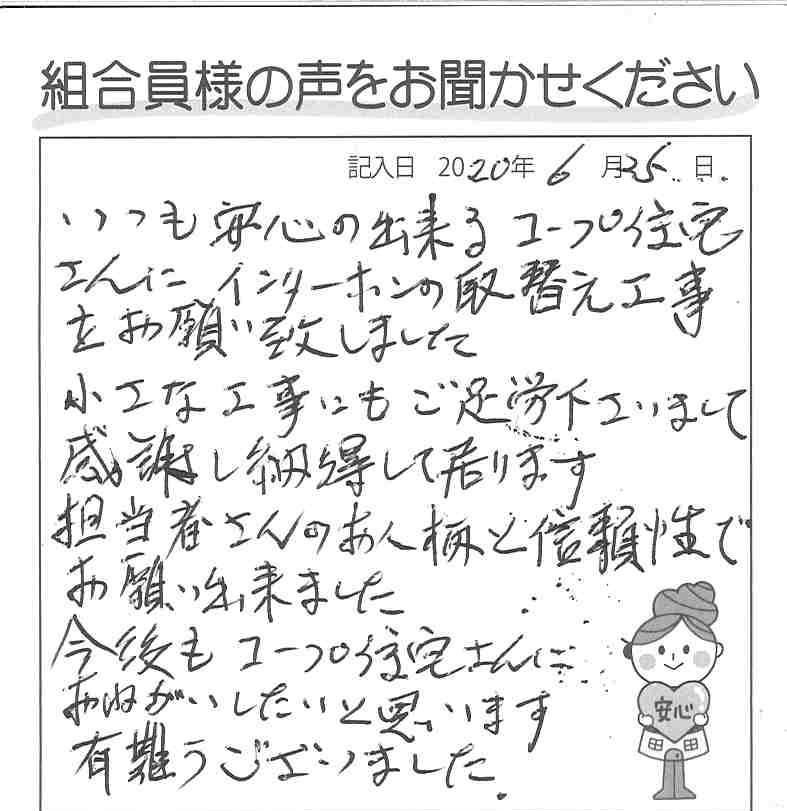 組合員様の声をお聞かせください
記入日 2020年 6月25日
いつも安心の出来るコープ住宅
さんにインターホンの取替え工事
をお願い致しました
小さな工事にもご足労下さいまして
感謝し納得して居ります
担当者さんのお人柄と信頼性で
お願い出来ました
今後もコープ住宅さんに
おねがいしたいと思います
有難うございました.
安心